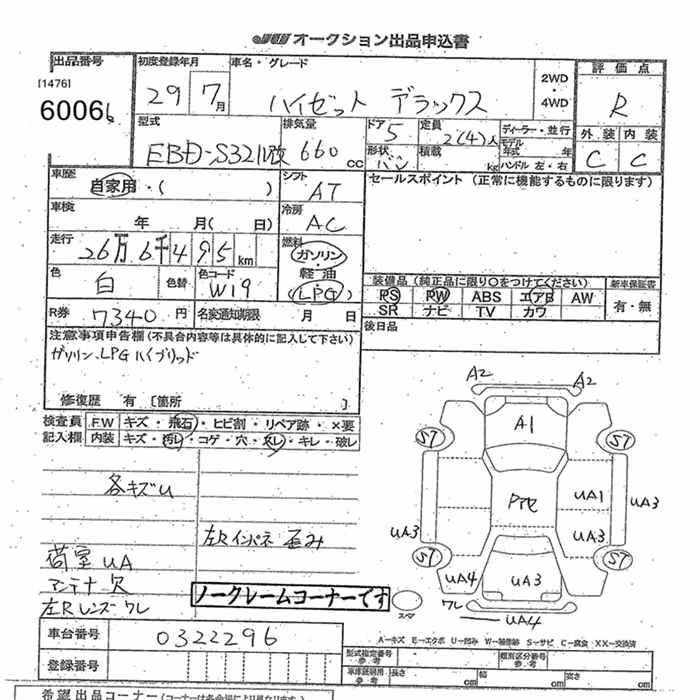 JU オークション出品申込書
出品番号 初度登録年月 車名・グレード 2WD・4WD 評価点
[1476]
6006 29 7月 ハイゼット デラックス R
型式 排気量 ドア 5 定員 2(4)人 ディーラー・並行 外装 内装
EBD-S321V改 660 cc 形状 バン 積載 kg モデル年式 年 ハンドル 左・右 C C
車歴 自家用・( ) シフト AT セールスポイント (正常に機能するものに限ります)
車検 年 月( 日) 冷房 AC
走行 26万6千495km 燃料 ガソリン・軽油 LPG
色 白 色替 色コード W19 装備品(純正品に限り○をつけてください) 新車保証書
PS PW ABS エアB AW 有・無
SR ナビ TV カワ
R券 7340円 名変通知期限 月 日 後日品
注意事項申告欄(不具合内容等は具体的に記入して下さい)
ガソリン、LPG ハイブリッド
修復歴 有〔箇所 〕
検査員記入欄 FW キズ・飛石・ヒビ割・リペア跡・×要
内装 キズ・汚レ・コゲ・穴・スレ・キレ・破レ
A2 A2
A1
S7 S7
各キズU
Pte UA1 UA3
左Rインパネ 歪み UA3 UA3
荷室UA S7 S7
アンテナ欠 UA4 UA3
左Rレンズワレ ノークレームコーナーです スペア ワレ UA4
車台番号 0322296 A－キズ E－エクボ U－凹み W－補修跡 S－サビ C－腐食 XX－交換済
登録番号 型式指定番号 参考 類別区分番号 参考
車庫証明用 参考 長さ cm 幅 cm 高さ cm
希望出品コーナー